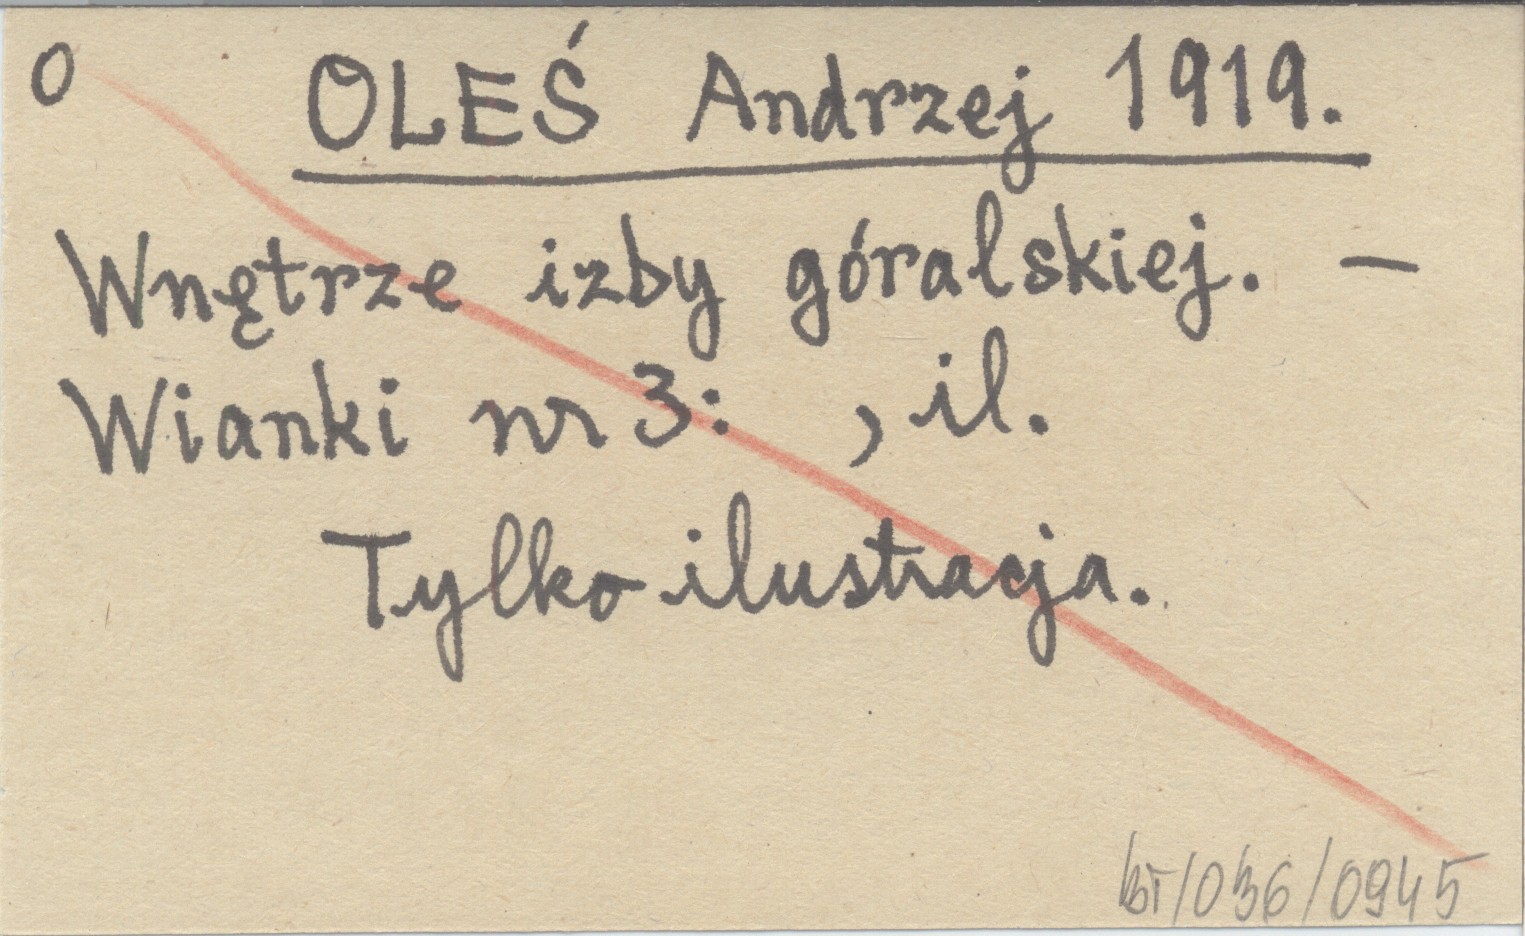 O
OLEŚ Andrzej 1919.
Wnętrze izby góralskiej. —
Wianki nr 3: , il.
Tylko ilustracja.
/036/0945